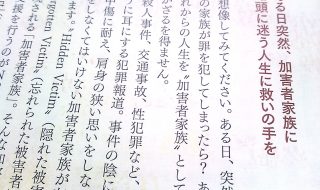 ある日突然、加害者家族に
頭に迷う人生に救いの手を
想像してみてください。ある日、突然
の家族が罪を犯してしまったら？ あ
れからの人生を〝加害者家族〟として
ざるを得ません。
殺人事件、交通事故、性犯罪など、
うに耳にする犯罪報道。事件の陰に
中傷に耐え、肩身の狭い思いをしな
をしなくてはいけない加害者家族が
ます。〝Hidden Victim〟（隠れた被害者
gotten Victim〟（忘れられた被害者
される「加害者家族」。そんな加
援を行うのがN